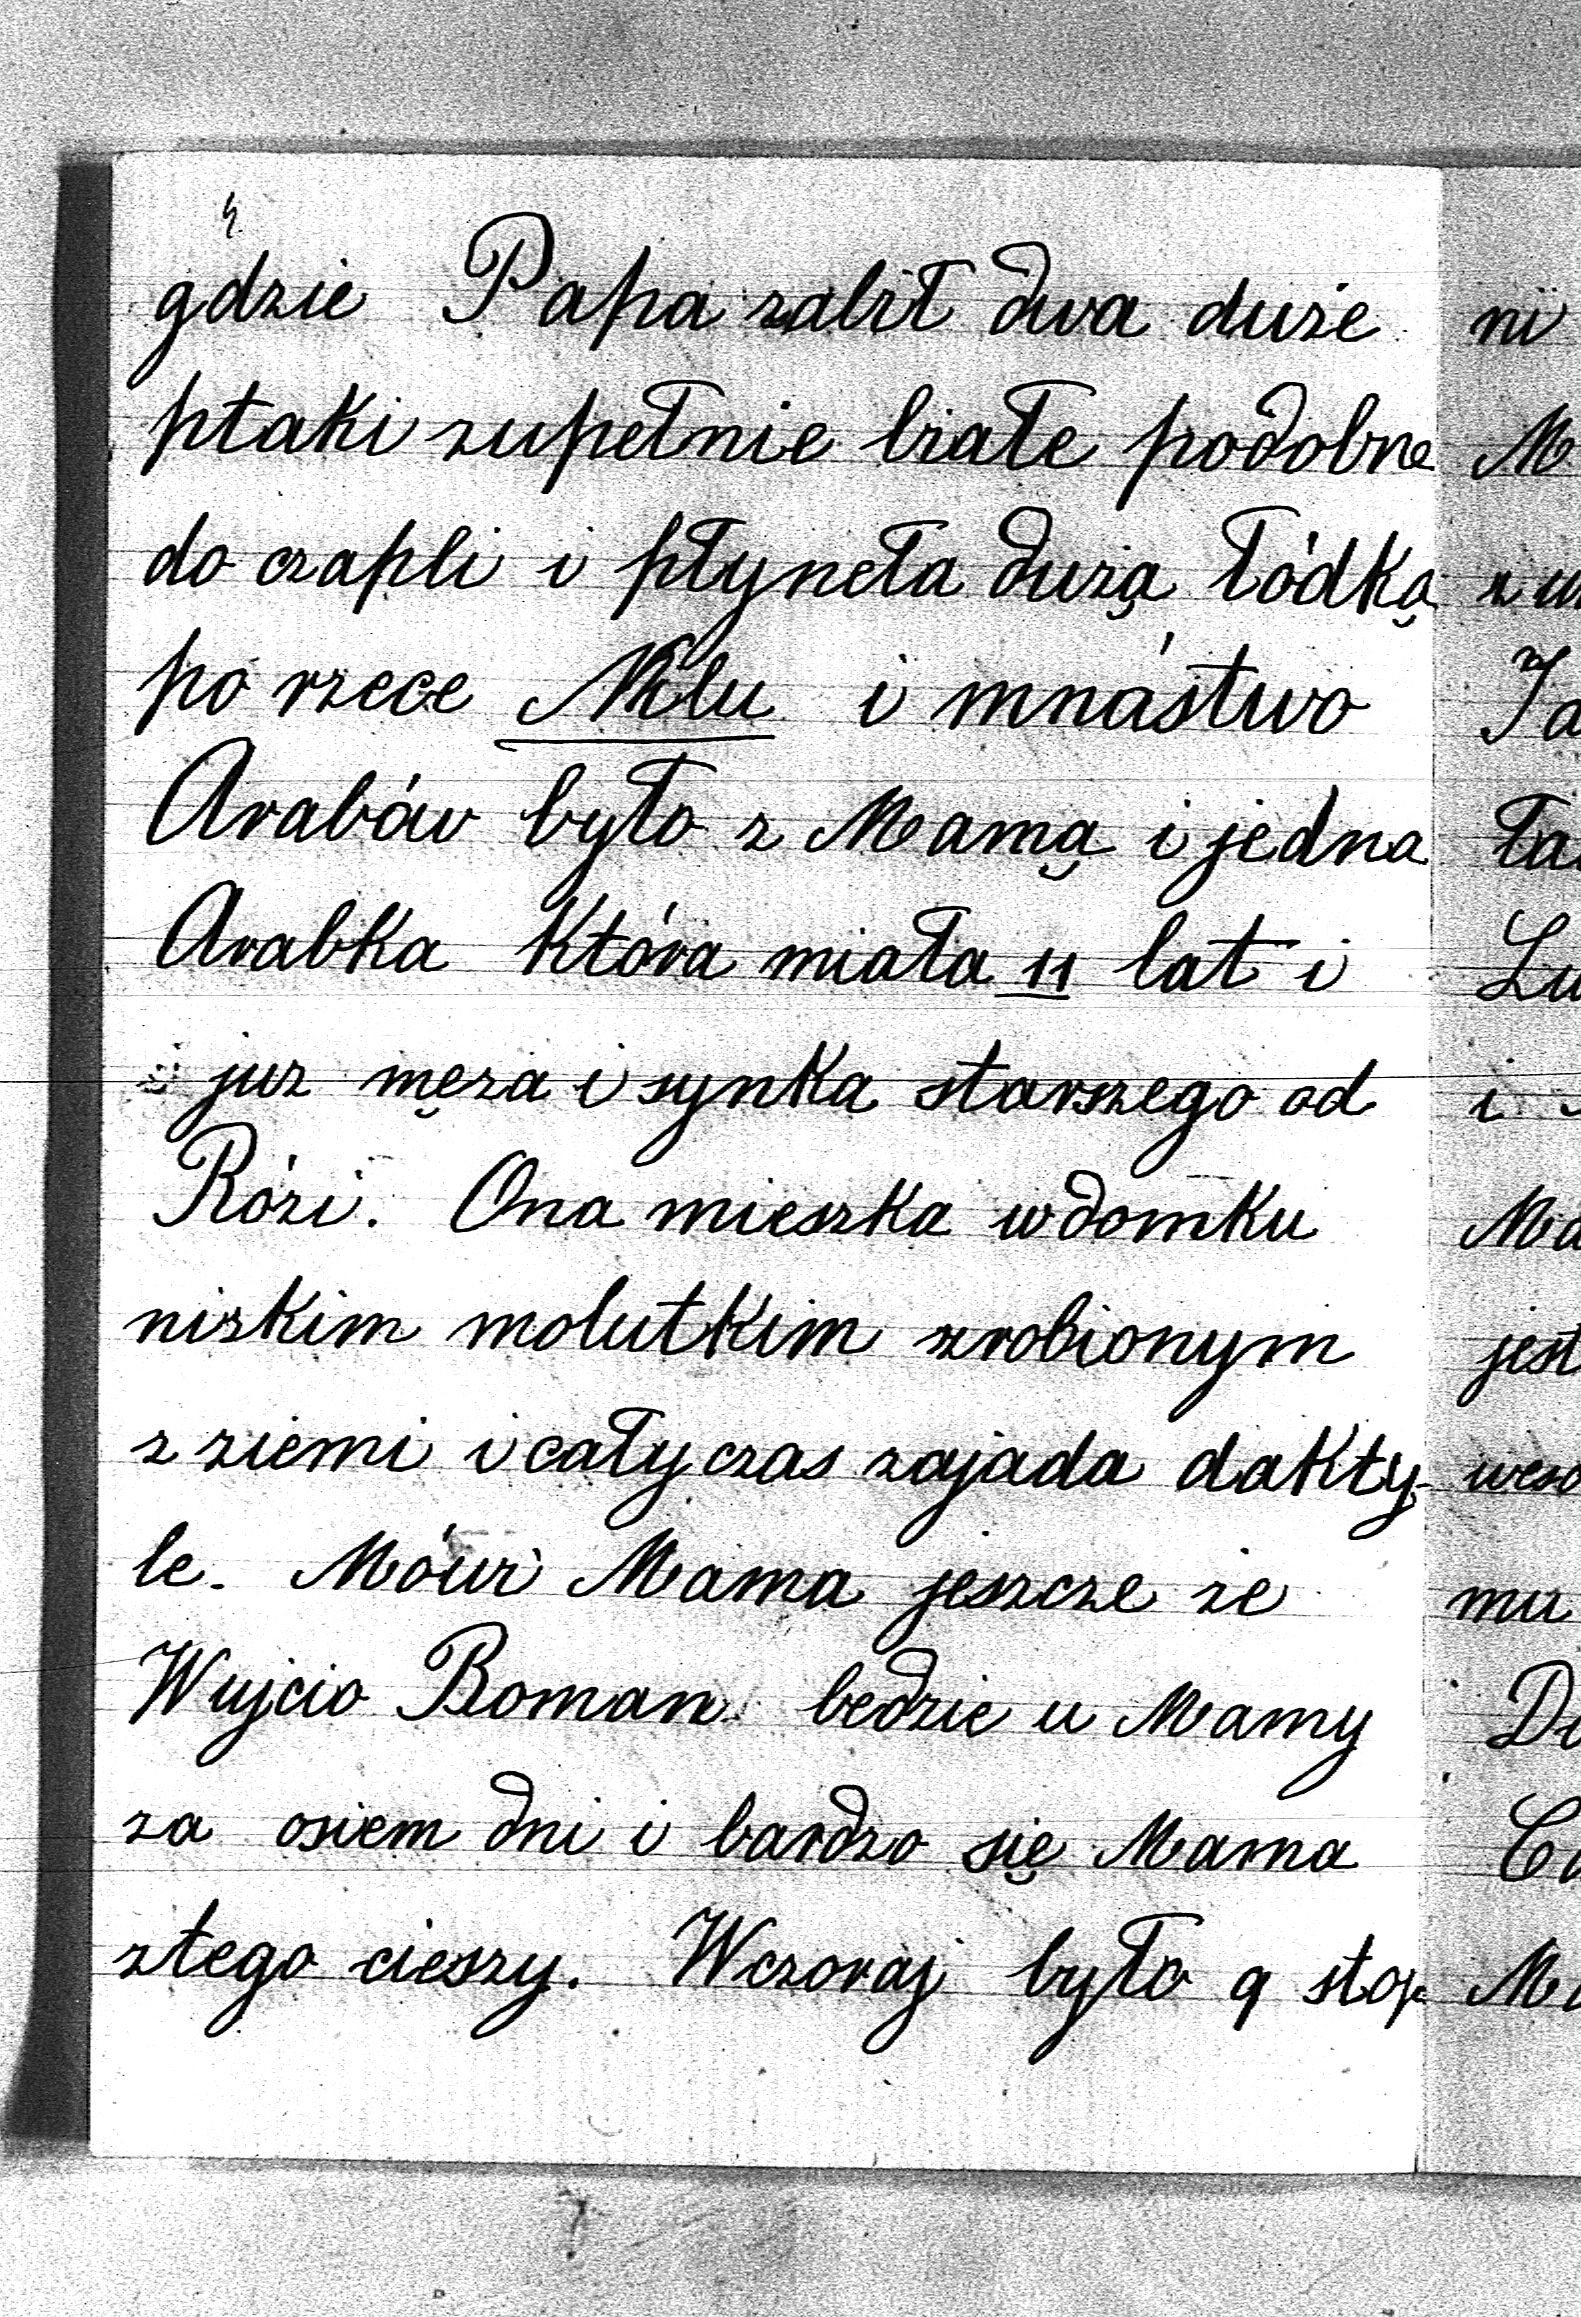 gdzie Papa zabił dwa duże
ptaki zupełnie białe podobne
do czapli i płyneła dużą łódką
po rzece Nilu i mnóstwo
Arabów było z Mamą i jedna
Arabka która miała 11 lat i
już męża i synka starszego od
Rózi. Ona mieszka w domku
nizkim molutkim zrobionym
z ziemi i cały czas zajada dakty-
le. Mówi Mama jeszcze że
Wujcio Roman bedzie u Mamy
za osiem dni i bardzo się Mama
z tego cieszy. Wczoraj było 9 stop